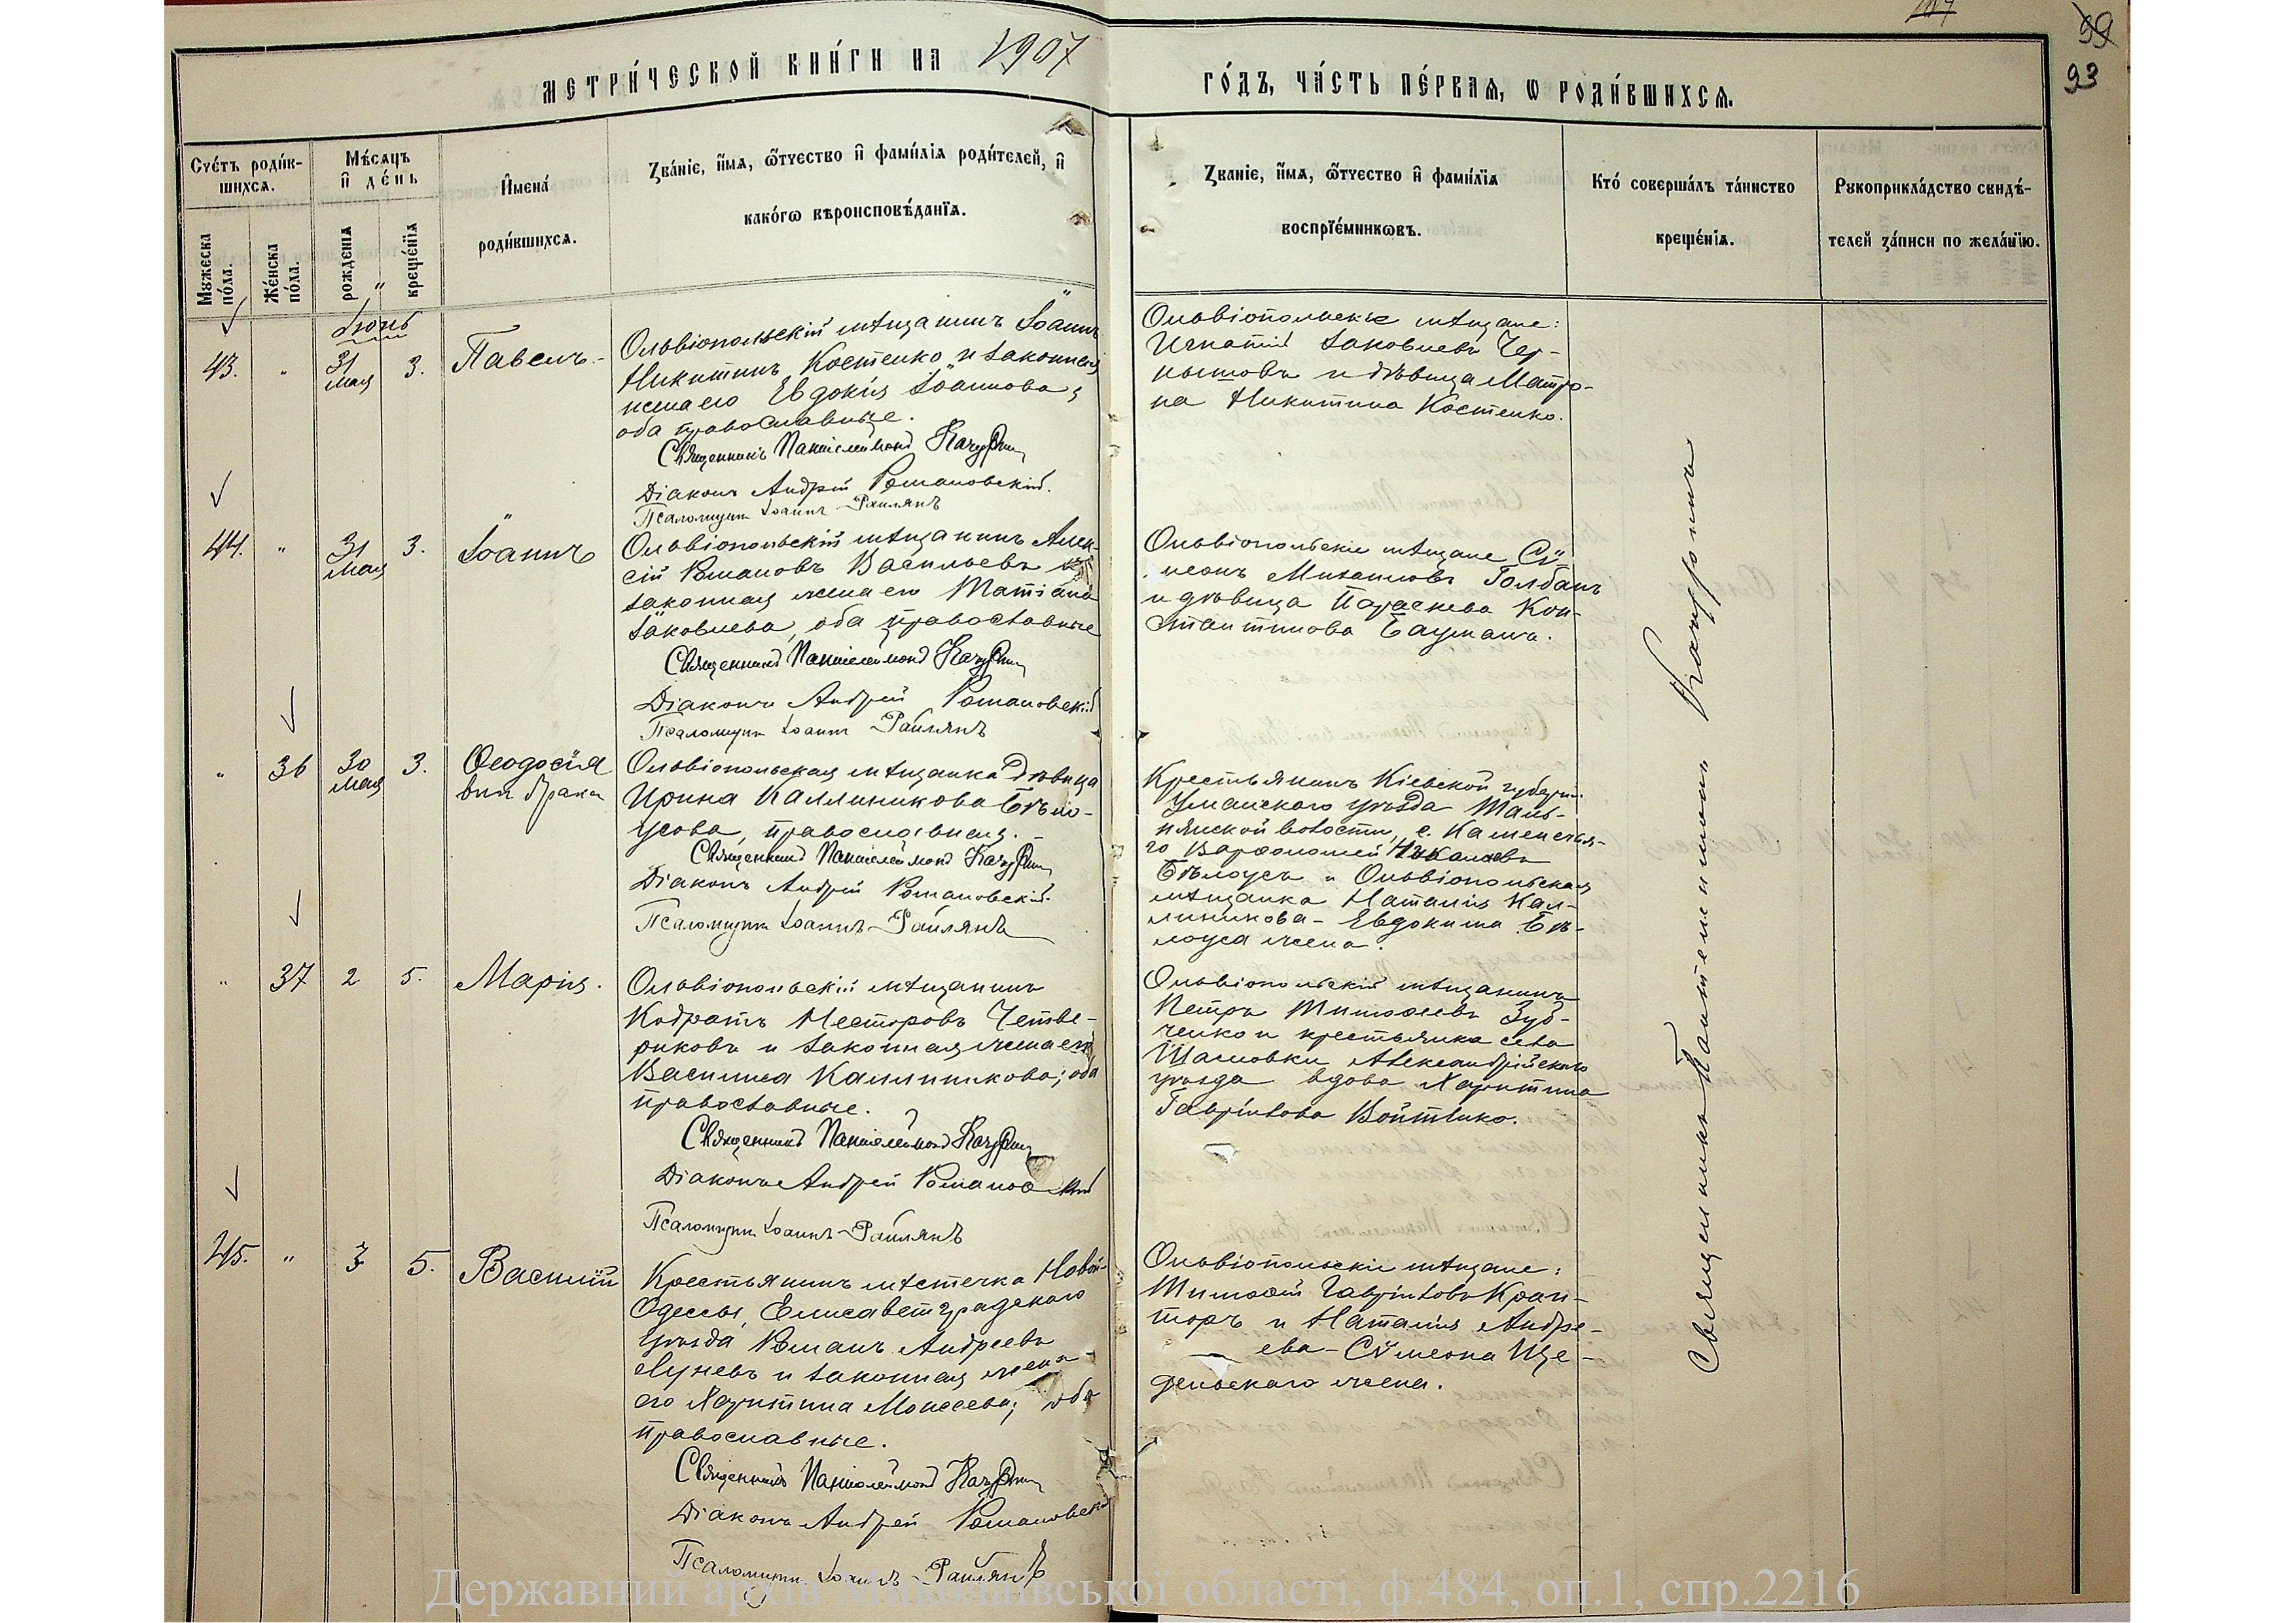 МЕТРИ́ЧЕСКОЙ КНИ́ГИ НА 1907
ГО́ДЪ, ЧА́СТЬ ПЕ́РВАѦ, Ѡ РОДИ́ВШИХСѦ.
99
93
Сче́тъ роди́в-
шихсѧ.
Мꙋжеска по́ла.
Же́нска по́ла.
Мѣ́сѧцъ
и҆ де́нь
рожденїѧ
креще́нїѧ
И҆мена̀
роди́вшихсѧ.
Зва́нїе, и҆́мѧ, ѻ҆́тчество и҆ фами́лїѧ роди́телей, и҆
како́гѡ вѣроисповѣ́данїѧ.
Зва́нїе, и҆́мѧ, ѻ҆́тчество и҆ фами́лїѧ
воспрїе́мникѡвъ.
Кто́ соверша́лъ та́инство
креще́нїѧ.
Рꙋкоприкла́дство свидѣ́-
телей за́писи по жела́нїю.
Іюнь
43. " 31 мая 3. Павелъ.
Ольвіопольскій мѣщанинъ Іоаннъ
Никитинъ Костенко и законная
жена его Евдокія Іоаннова,
оба православные.
Священникъ Пантелеймонъ
Діаконъ Андрей Романовскій.
Псаломщик Іоаннъ Раилянъ
Ольвіопольскіе мѣщане:
Игнатій Іаковлевъ Чер-
и дѣвица Матро-
на Никитина Костенко.
44. " 31 мая 3. Іоаннъ
Ольвіопольскій мѣщанинъ Алек-
сій Романовъ Васильевъ и
законная жена его Татіана
Іаковлева, оба православные
Священникъ Пантелеймонъ
Діаконъ Андрей Романовскій
Псаломщик Іоаннъ Раилянъ
Ольвіопольскіе мѣщане Сѵ-
меонъ Михаиловъ Голбанъ
и дѣвица Параскева Кон-
стантинова Бауманъ.
" 36 30 мая 3. Ѳеодосія
внѣ брака
Ольвіопольская мѣщанка дѣвица
Ирина Каллиникова Бѣло-
усова, православная.
Священникъ Пантелеймонъ
Діаконъ Андрей Романовскій.
Псаломщик Іоаннъ Раилянъ
Крестьянинъ Кіевской губерніи
Уманского уѣзда Таль-
нянской волости, с. Каменечья-
го Варѳоломей
Бѣлоусъ и Ольвіопольская
мѣщанка Наталія Кал-
линикова - Евдокима Бѣ-
лоуса жена.
" 37 2 5. Марія.
Ольвіопольскій мѣщанинъ
Кодратъ Несторовъ Четве-
риковъ и законная жена его
Василиса Каллиникова; оба
православные.
Священникъ Пантелеймонъ
Діаконъ Андрей Романовскій
Псаломщик Іоаннъ Раилянъ
Ольвіопольскій мѣщанинъ
Петръ Тимоѳеевъ Зуб-
ченко и крестьянка села
Александрійского
уѣзда вдова Харитина
Гавріилова Войтенко.
45. " 3 5. Василій
Крестьянинъ мѣстечка Новой-
Одессы, Елисаветградского
уѣзда Романъ Андреевъ
Луневъ и законная жена
его Харитина Моисеева; оба
православные.
Священникъ Пантелеймонъ
Діаконъ Андрей Романовскій
Псаломщик Іоаннъ Раилянъ
Ольвіопольскіе мѣщане:
Тимоѳей Гавріиловъ Кран-
торъ и Наталія Андре-
ева - Сѵмеона Ще-
дельского жена.
Священникъ Пантелеимонъ
Державний архів Миколаївської області, ф.484, оп.1, спр.2216